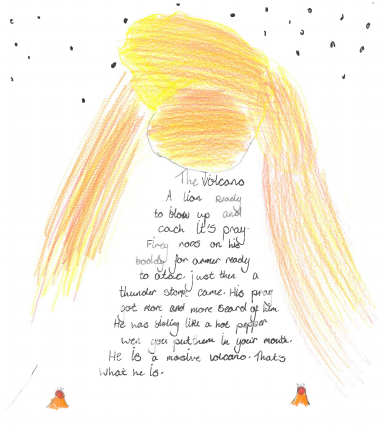 The Volcano
A lion Ready
to blow up and
cach it's pray.
Firey rocs on his
boddy for armer ready
to atac. just then a
thunder storm came. His pray
got more and more scard of him.
He was boling like a hot pepper
wen you put them in your mouth.
He is a masive volcano. That's
what he is.